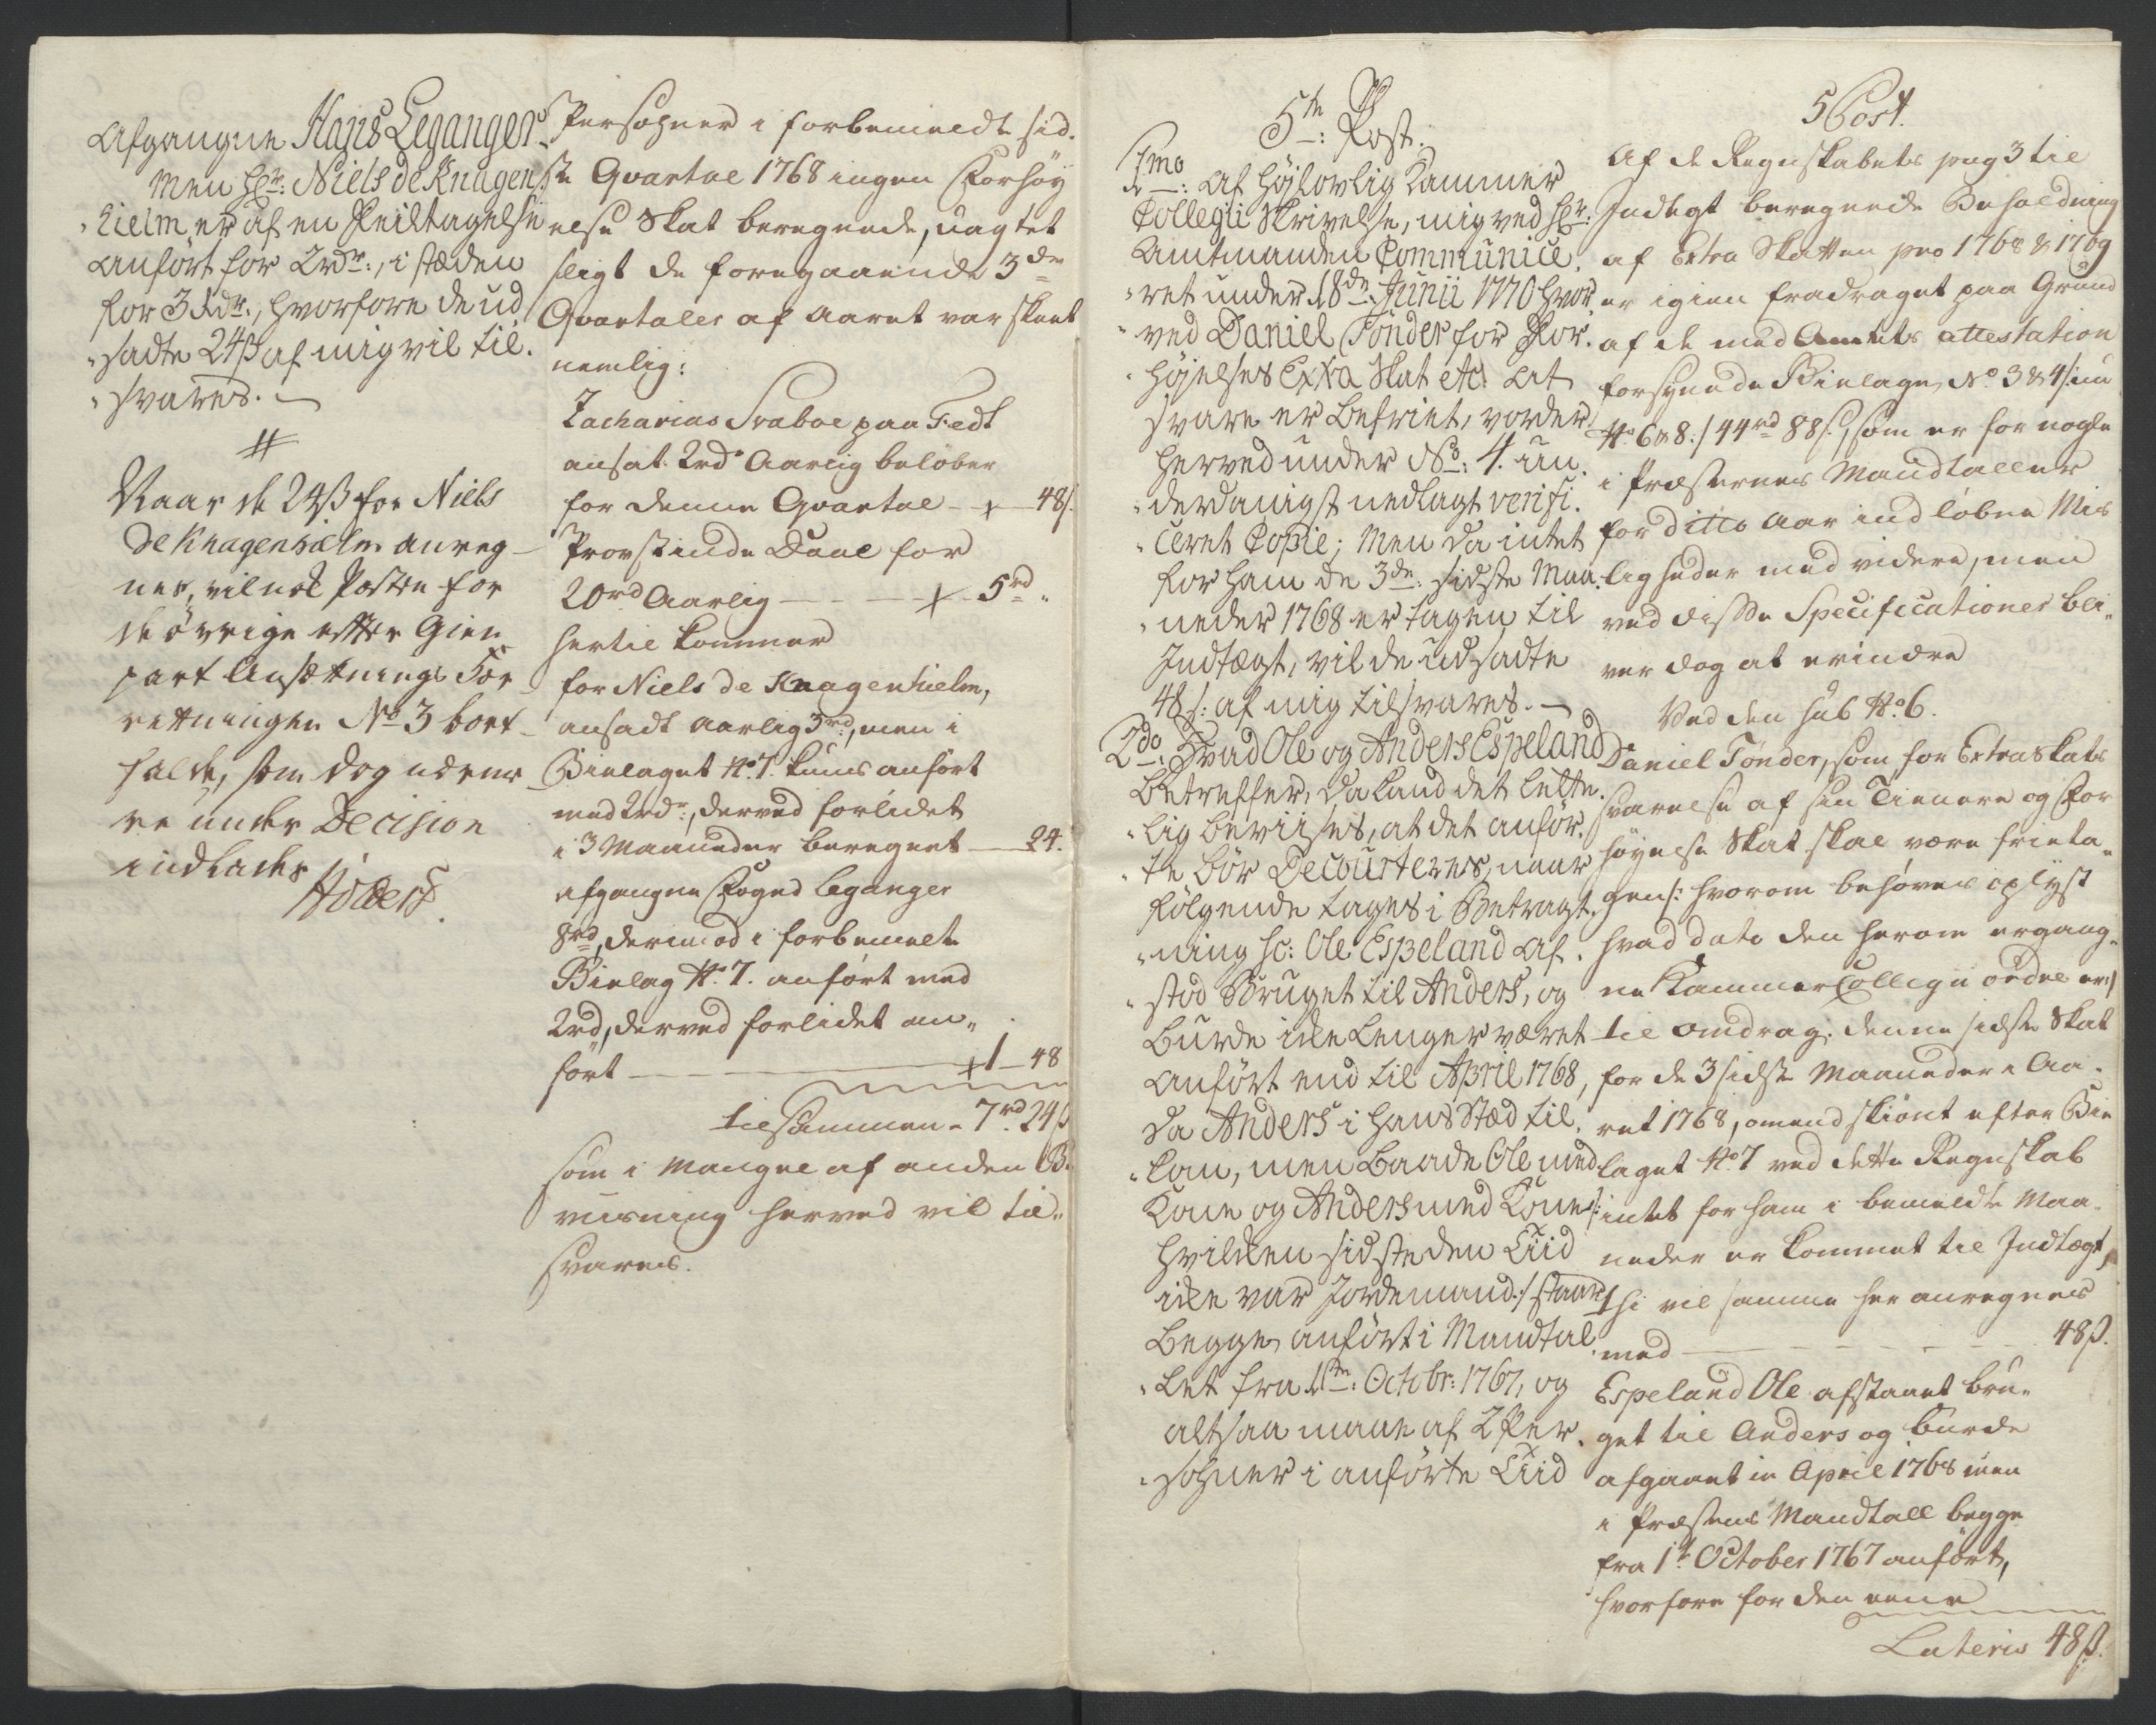 Afgangne Hans Leganger.
Men Hr: Niels de Knagen-
hielm, er af en Feiltagelse
anført for 2rdr:, i stæden
for 3rdr:, hvorfore de ud
satte 24ß af mig vil til-
svares. —
#
Naar de 24ß for Niels
de Knagenhielm anreg-
nes, vil nok Posten for
de øvrige efter Gien
part Ansætnings For-
retningen No 3 bort-
falde, som dog udi
under Decision
indlades

Persohner i forbemeldte sid-
ste Qvartal 1768 ingen Forhøy
else Skat beregnede, uagtet
sligt de foregaaende 3de
Qvartaler af Aaret var skeet
nemlig:
Zacharias Svaboe paa Fedt
ansat 2rd. Aarlig beløber
for denne Qvartal — 48ß.
Provstinde Daae for
20rd Aarlig — 5rd "
hertil kommer
for Niels de Knagenhielm,
ansadt Aarlig 3rd:, men i
Bielaget No. 7. kuns anført
med 2rdr:, derved forlidet
i 3 Maaneder beregnet — 24.
afgangne Foged Leganger
8rd, derimod i forbemelte
Bielag No. 7. anført med
2rd, derved forlidet an-
ført — 1 — 48
tilsammen - 7rd. 24ß
som i Mangel af anden Be
viisning herved vil til-
svares.

5te: Post.
1mo: Af Høylovlig Cammer
Collegii Skrivelse, mig ved Hr:
Amtmanden Communice-
ret under 18de Junii 1770 hvor
ved Daniel Tønder for For-
høyelses Extra Skat etc. at
svare er Befriet, vorder
herved under No: 4. un-
derdanigst nedlagt verifi-
ceret Copie; Men da intet
for ham de 3de: sidste Maa-
neder 1768 er tagen til
Indtægt, vil de udsadte
48ß: af mig tilsvares. —
2do: Hvad Ole og Anders Espeland
Betreffer, da kand det lætte-
lig beviises, at det anfør-
te bør Decourteres, naar
følgende tages i Betragt-
ning sc: Ole Espeland af-
stod Bruget til Anders, og
Burde ikke Lenger været
anført end til April 1768,
da Anders i hans Stæd til-
kom, men Baade Ole med
Kone og Anders med Kone /:
hvilken sidste den Tiid
ikke var Jordemand :/ staar
Begge anført i Mandtal-
let fra 1ste: Octobr: 1767, og
altsaa maae af 2 Per-
sohner i anførte Tiid

5 Post.
Af de Regnskabets pag 3 til
Indtegt beregnede Beholdning
af Extra Skatten pro 1768 & 1769
er igien fradraget paa Grund
af de med Amtets attestation
forsynede Bielage, No. 3 & 4 /: nu
No. 6 & 8 :/ 44rd 88ß., som er for nogle
i Præsternes Mandtaller
for ditto Aar indløbne Mis
ligheder med videre, men
ved disse Specificationer bli-
ver dog at erindre
Ved den sub No. 6.
Daniel Tønder, som for Extraskats
svarelse af sin Tienere og For
høyelse Skat skal være frieta-
gen /: hvorom behøves oplyst
hvad dato den herom ergang-
ne Kammer Collegii ordre er :/
til omdrag: denne sidste Skat
for de 3 sidste Maaneder i Aa-
ret 1768, omend skiønt efter Bie
laget No. 7 ved dette Regnskab
intet for ham i bemeldte Maa-
neder er kommet til Indtægt,
thi vil samme her anregnes
med — 48ß.
Espeland Ole afstaaet bru-
get til Anders og burde
afgaaet in April 1768 men
i Præstens Mandtall begge
fra 1te October 1767 anført,
hvorfore for den eene
Lateris 48ß.